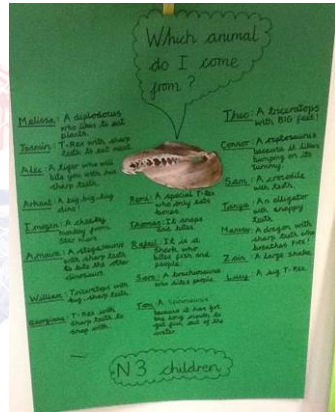 Which animal
do I come
from?
Melissa: A diplodocus
who likes to eat
plants.
Tasnim: T-Rex with sharp
teeth to eat meat.
Alec: A tiger who will
bite you with his
sharp teeth.
A big, big, big
dino!
Imogen: A cheeky
monkey from
star wars
Amaura: A stegosaurus
with sharp teeth
to bite the other
dinosaurs.
William: Triceratops with
big, sharp teeth.
T-Rex with
sharp teeth to
snap with.
Remi: A special T-Rex
who only eats
bones.
Thomas: It snaps
and bites.
Rafael: It is a
shark who
bites fish and
people.
Sara: A brachiosaurus
who bites people.
Tom: A Spinosaurus
because it has got
the long mouth to
get fish out of the
water.
Theo: A triceratops
with BIG feet!
Connor: A
because it likes
bumping on its
tummy.
Sam: A crocodile
with teeth.
Tanya: An alligator
with snappy
teeth.
A dragon with
sharp teeth who
breathes fire!
Zain: A large snake.
Lily: A big T-Rex.
N3 children